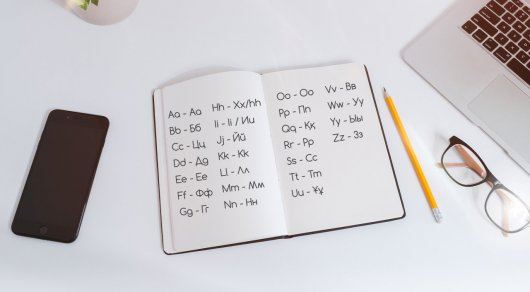 Aa - Аа
Bb - Бб
Cc - Цц
Dd - Дд
Ee - Ее
Ff - Фф
Gg - Гг
Hh - Хх/hh
Ii - Ii / Ии
Jj - Йй
Kk - Кк
Ll - Лл
Mm - Мм
Nn - Нн
Oo - Оо
Pp - Пп
Qq - Ққ
Rr - Рр
Ss - Сс
Tt - Тт
Uu - Ұұ
Vv - Вв
Ww - Уу
Yy - Ыы
Zz - Зз